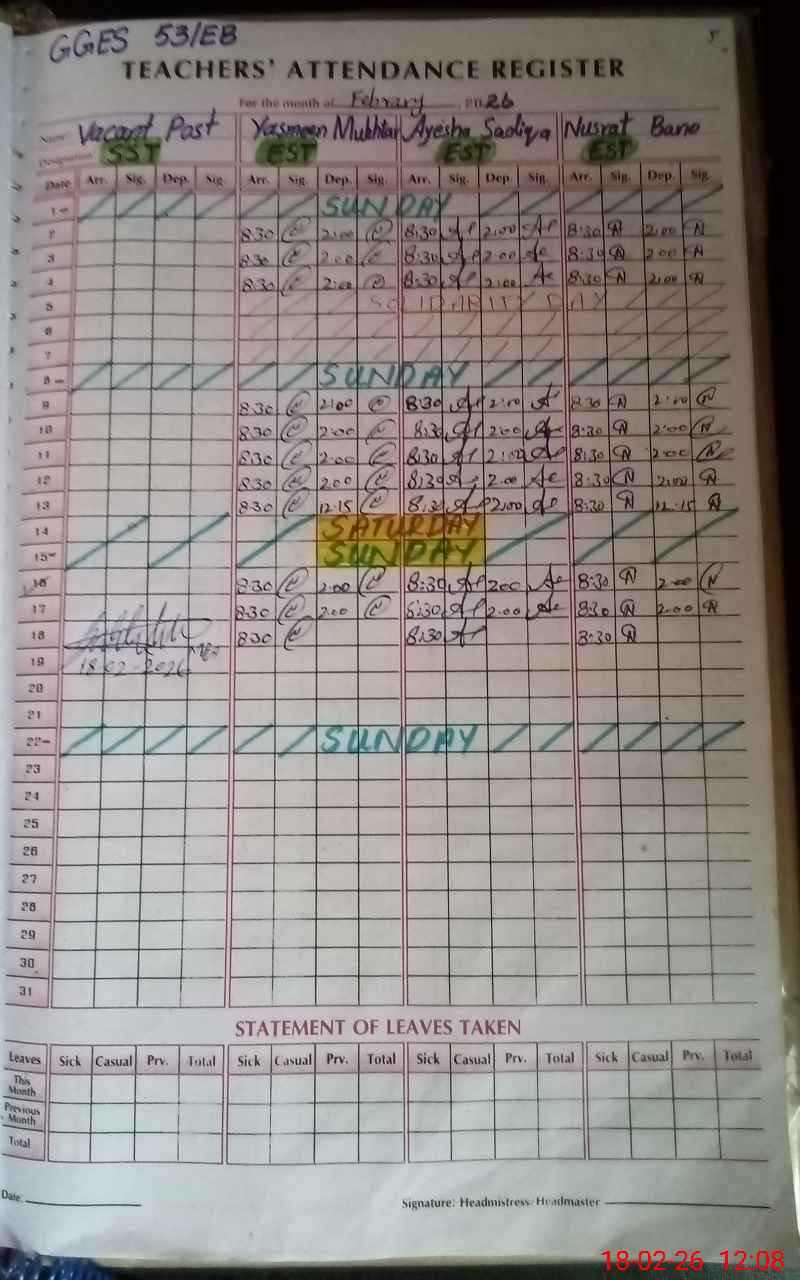 GGES 53/EB
5
TEACHERS' ATTENDANCE REGISTER
For the month of February, 2026
Name Vacant Post Yasmeen Mukhtar Ayesha Sadiqa Nusrat Bano
Designation SST EST EST EST
Date Arr. Sig. Dep. Sig. Arr. Sig. Dep. Sig. Arr. Sig. Dep. Sig. Arr. Sig. Dep. Sig.
1 SUNDAY
2 8:30 2:00 8:30 2:00 8:30 2:00
3 8:30 2:00 8:30 2:00 8:30 2:00
4 8:30 2:00 8:30 2:00 8:30 2:00
5 SOLIDARITY DAY
6
7
8 SUNDAY
9 8:30 2:00 8:30 2:00 8:30 2:00
10 8:30 2:00 8:30 2:00 8:30 2:00
11 8:30 2:00 8:30 2:00 8:30 2:00
12 8:30 2:00 8:30 2:00 8:30 2:00
13 8:30 12:15 8:30 2:00 8:30 12:15
14 SATURDAY
15 SUNDAY
16 8:30 2:00 8:30 2:00 8:30 2:00
17 8:30 2:00 8:30 2:00 8:30 2:00
18 8:30 8:30 8:30
19 18-02-2026
20
21
22 SUNDAY
23
24
25
26
27
28
29
30
31
STATEMENT OF LEAVES TAKEN
Leaves Sick Casual Prv. Total Sick Casual Prv. Total Sick Casual Prv. Total Sick Casual Prv. Total
This Month
Previous Month
Total
Date: Signature: Headmistress/Headmaster
18-02-26 12:08